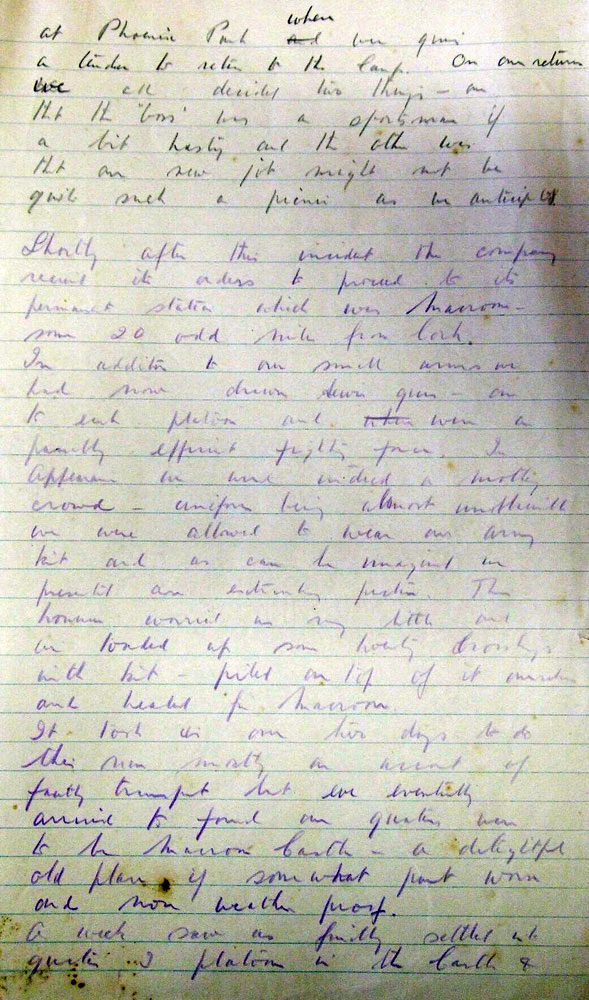 at Phoenix Park when and we given
a tender to return to the Camp. On our return
we all decided two things - one
that the 'boss' was a sportsman if
a bit hasty and the other was
that our new job might not be
quite such a picnic as we anticipated
Shortly after this incident the company
received its orders to proceed to its
permanent station which was Macroom -
some 20 odd miles from Cork.
In addition to our small arms we
had now drawn Lewis guns - one
to each platoon and when were a
passably efficient fighting force. In
appearance we were indeed a motley
crowd - uniform being almost unobtainable
we were allowed to wear our army
kit and as can be imagined we
presented an extraordinary picture. This
however worried us very little and
we loaded up some twenty Crossleys
with kit - piled on top of it ourselves
and headed for Macroom.
It took us over two days to do
this run mostly on account of
faulty transport but we eventually
arrived to found our quarters were
to be Macroom Castle - a delightful
old place if somewhat past worn
and non weather proof.
A week saw us finally settled into
quarters 3 platoons in the Castle &